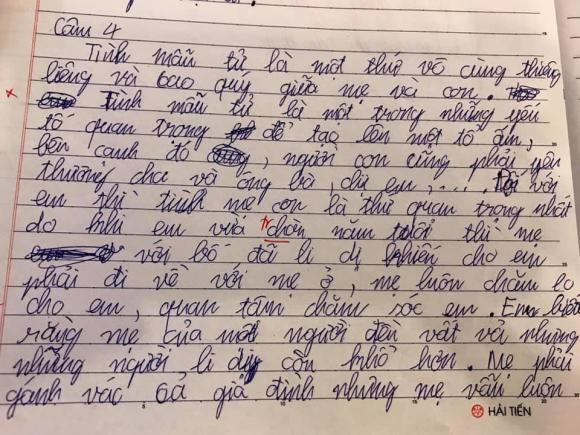 Câu 4
Tình mẫu tử là một thứ vô cùng thiêng
liêng và bao quý giữa mẹ và con.
Tình mẫu tử là một trong những yếu
tố quan trong để tạo lên một tổ ấm,
bên cạnh đó, người con cũng phải yêu
thương cha và ông bà, chị em,.... với
em thì tình mẹ con là thứ quan trọng nhất
do khi em vừa tr chòn năm tuổi thì mẹ
với bố đã li dị khiến cho em
phải đi về với mẹ ở, mẹ luôn chăm lo
cho em, quan tâm chăm sóc em. Em biết
rằng mẹ của một người đều vất vả nhưng
những người li dị còn khổ hơn. Mẹ phải
gánh vác cả gia đình nhưng mẹ vẫn luôn
HẢI TIẾN